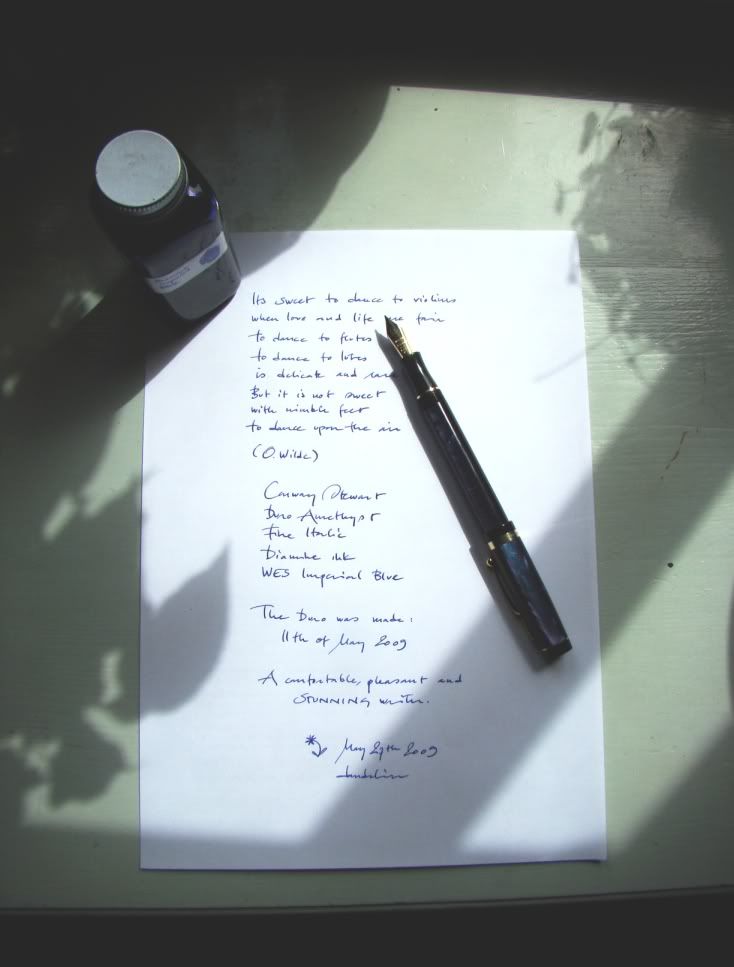 Its sweet to dance to violins
when love and life are fair
to dance to flutes
to dance to lutes
is delicate and rare
But it is not sweet
with nimble feet
to dance upon the air
(O. Wilde)
Conway Stewart
Duro Amethyst
Fine Italic
Diamine ink
WES Imperial Blue
The Duro was made:
11th of May 2009
A comfortable, pleasant and
STUNNING writer.
May 29th 2009